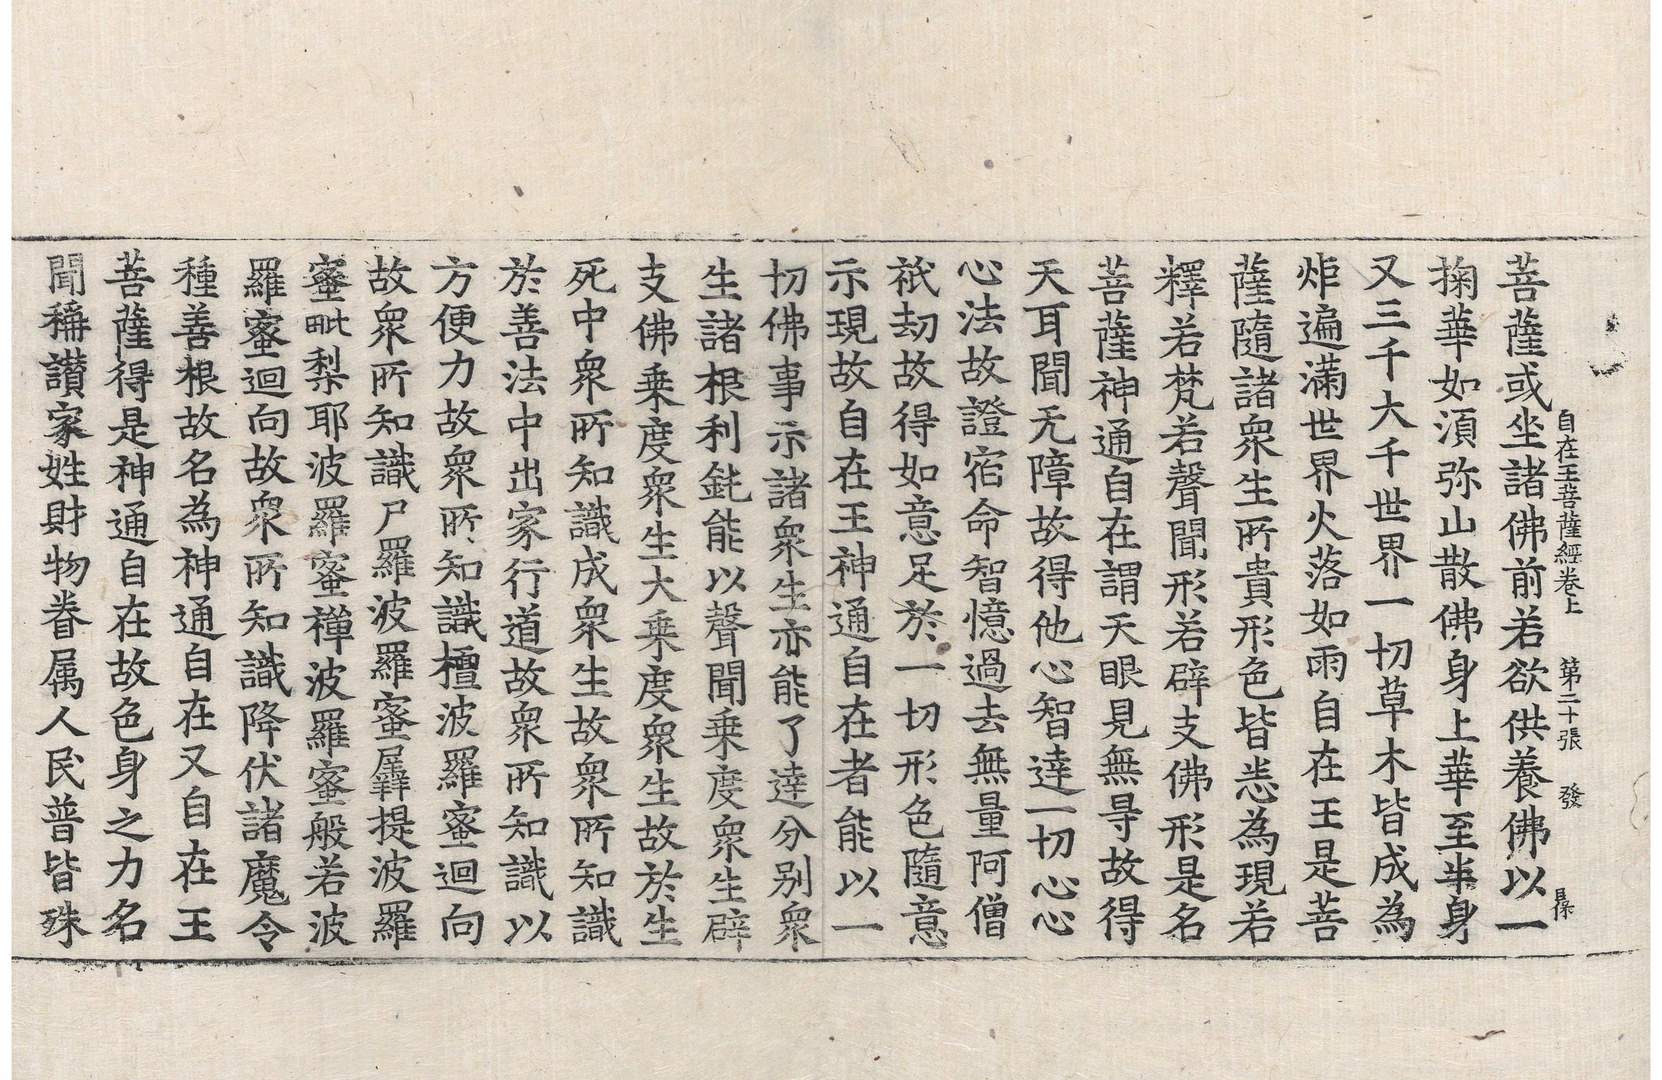 自在王菩薩經卷上　第二十張　發　
菩薩或坐諸佛前若欲供養佛以一
掬華如湏弥山散佛身上華至半身
又三千大千世界一切草木皆成為
炬遍滿世界火落如雨自在王是菩
薩隨諸衆生所貴形色皆悉為現若
釋若梵若聲聞形若辟支佛形是名
菩薩神通自在謂天眼見無㝵故得
天耳聞无障故得他心智達一切心心
心法故證宿命智憶過去無量阿僧
祇劫故得如意足於一切形色隨意
示現故自在王神通自在者能以一
切佛事示諸衆生亦能了達分别衆
生諸根利鈍能以聲聞乗度衆生辟
支佛乗度衆生大乗度衆生故於生
死中衆所知識成衆生故衆所知識
於善法中出家行道故衆所知識以
方便力故衆所知識檀波羅蜜迴向
故衆所知識尸羅波羅蜜羼提波羅
蜜毗梨耶波羅蜜禪波羅蜜般若波
羅蜜迴向故衆所知識降伏諸魔令
種善根故名為神通自在又自在王
菩薩得是神通自在故色身之力名
聞稱讃家姓財物眷属人民普皆殊